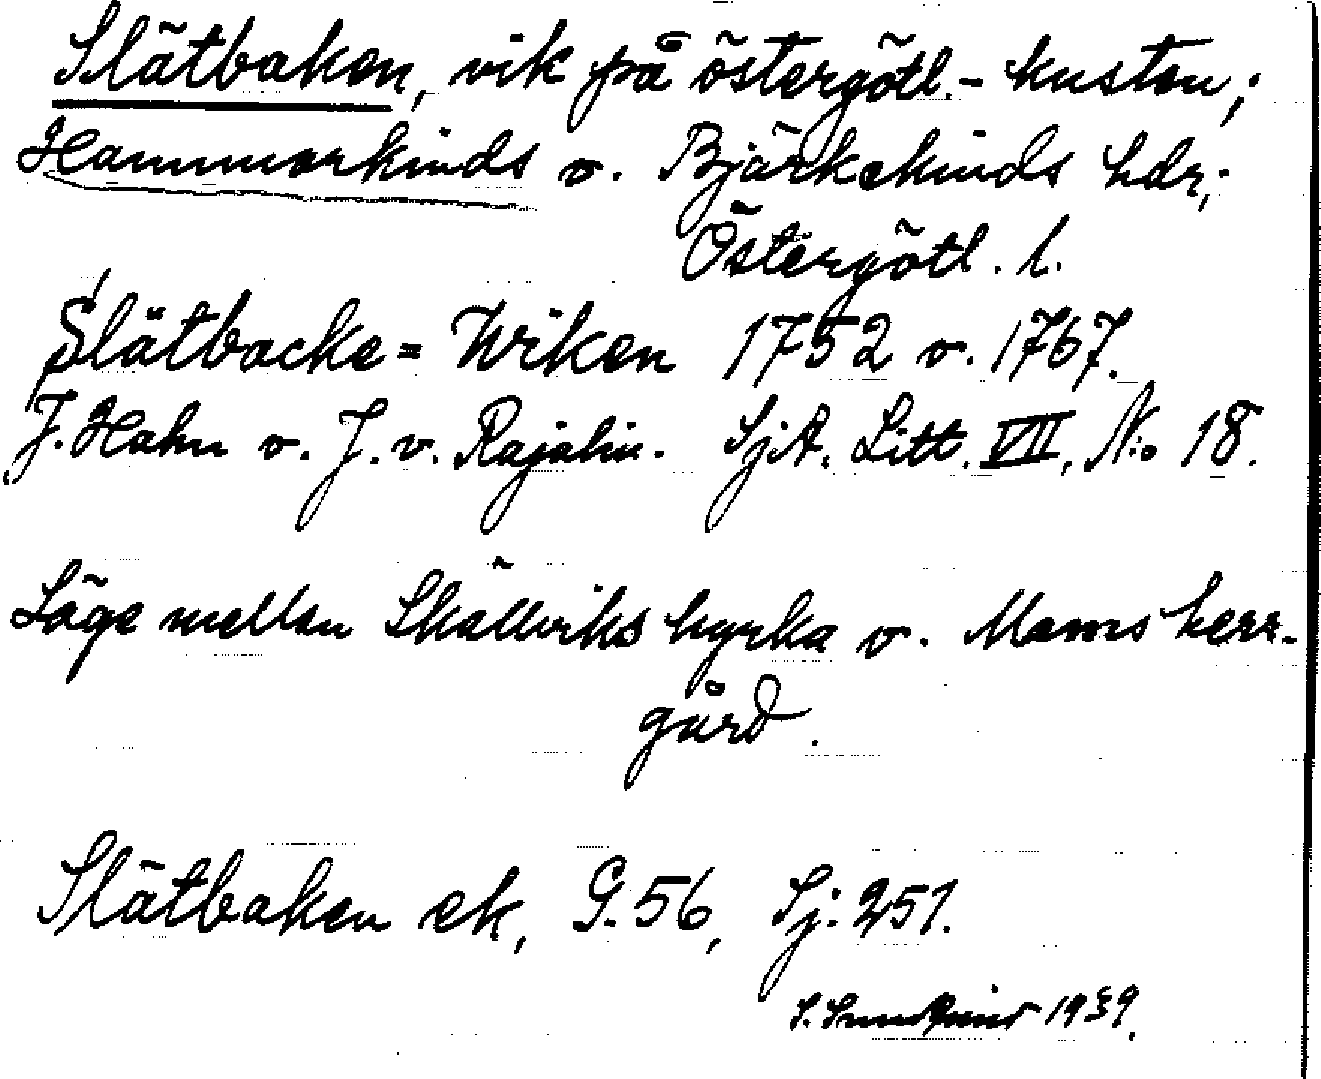 Slätbaken, vik på östergötl.- kusten;
Hammarkinds o. Björkekinds hdr;
Östergötl. l.
Slätbacke = Wiken 1752 o. 1767.
J. Hahn o. J. v. Rajalin. SjA. Litt. VII, No 18.
Läge mellan Skällviks kyrka o. Mems herr-
gård.
Slätbaken ek, G. 56, Sj: 251.
S. Sundquist 1939.